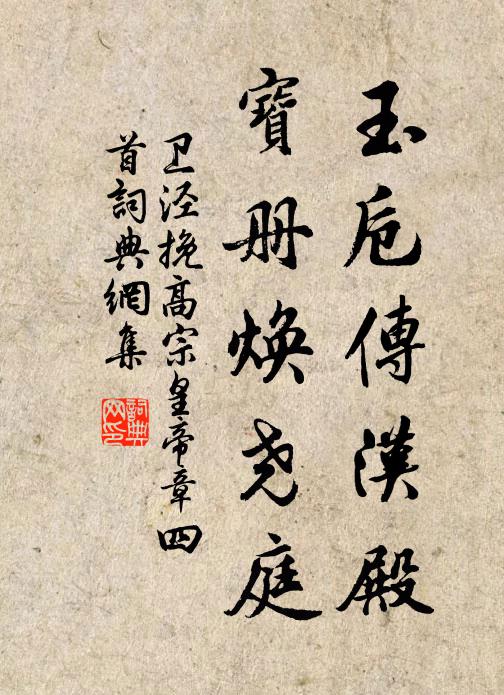 玉卮傳漢殿
寶册焕尧庭
卫泾挽高宗皇帝章四
首詞典網集
詞典
网印